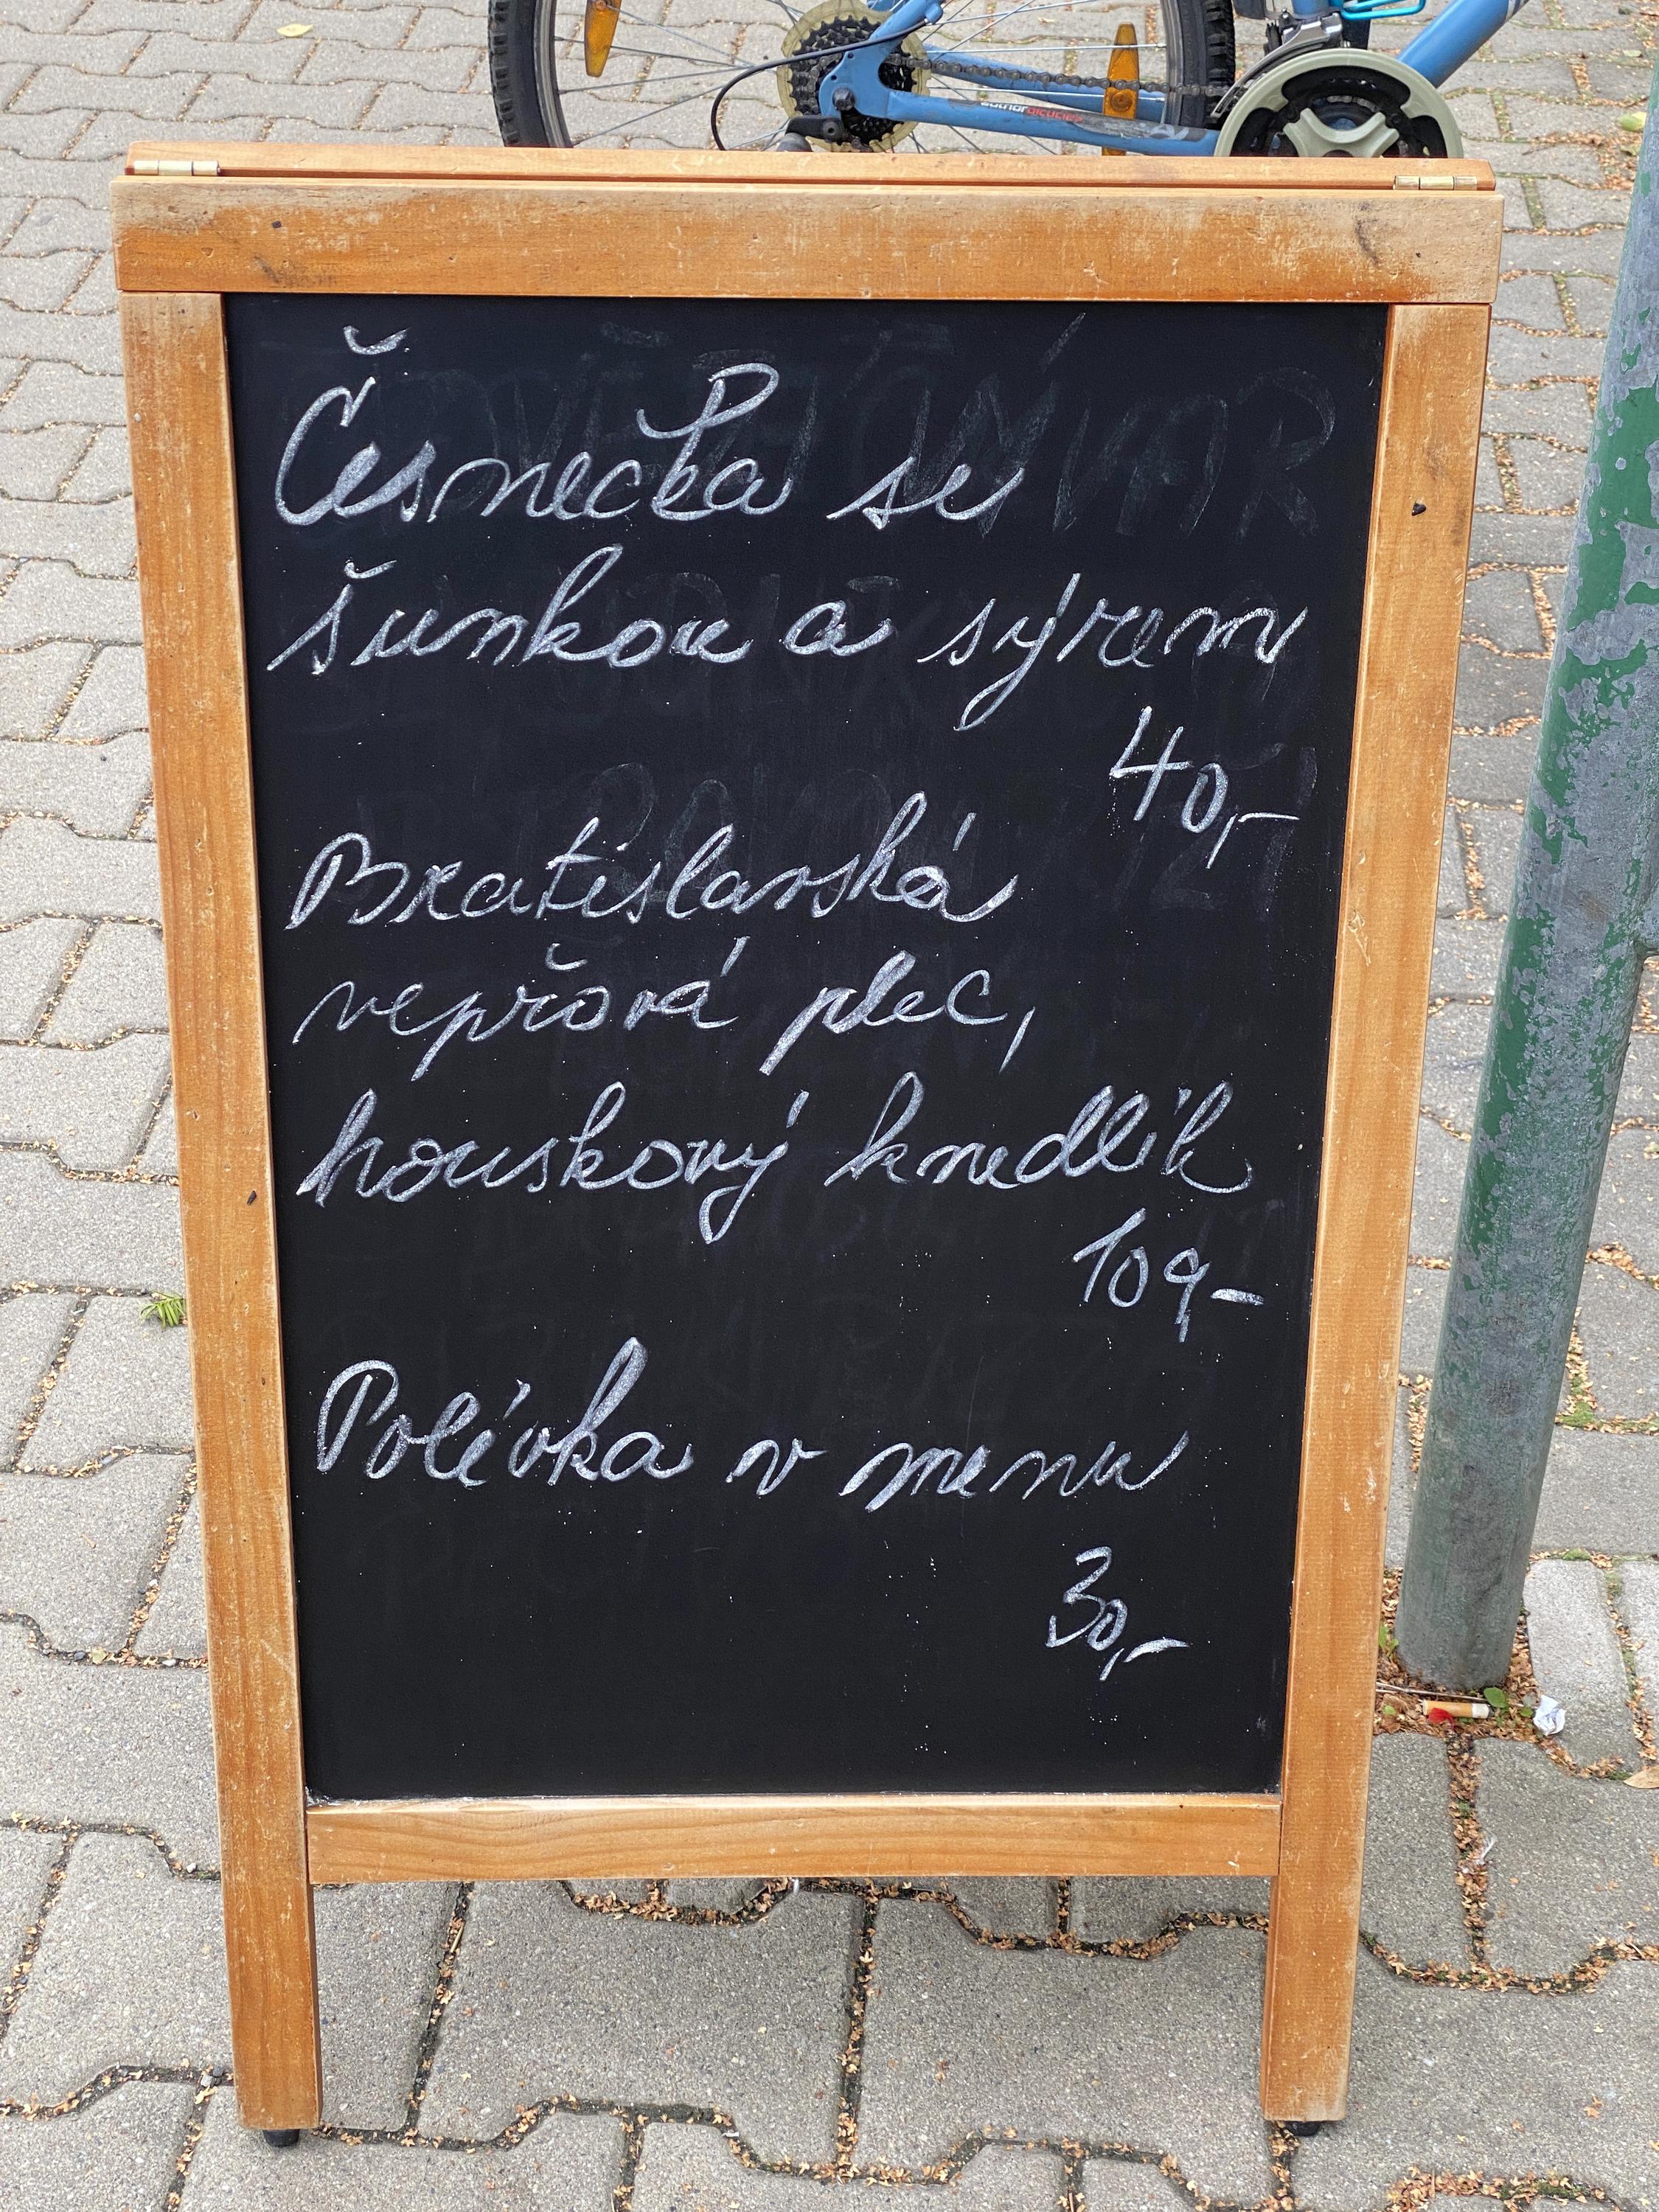 authorbicycles
Česnečka se
šunkou a sýrem
40,-
Bratislavská
vepřová plec,
houskový knedlík
109-
Polévka v menu
30,-